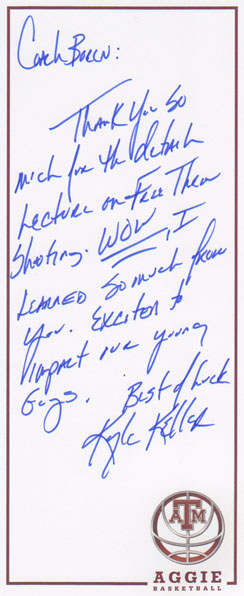 Coach Boren:
Thank you so
much for the detail
Lecture on Free Throw
Shooting. WOW, I
Learned so much from
you. Excited to
impact our young
Guys.
Best of Luck
Kyle Keller
ATM
AGGIE
BASKETBALL